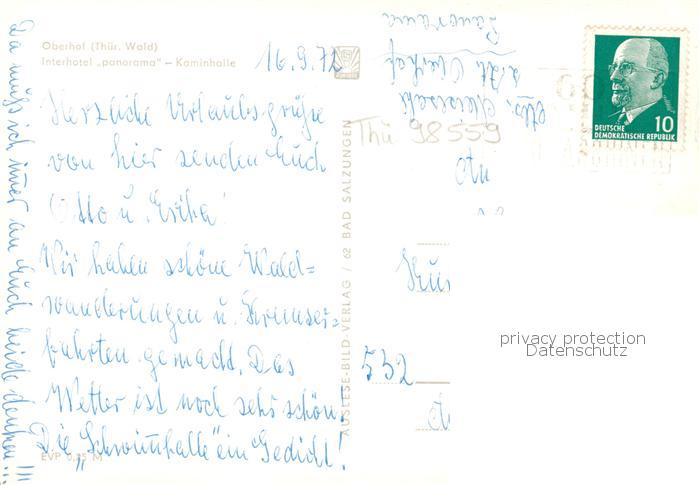 Oberhof (Thür. Wald)
Interhotel „panorama" – Kaminhalle
16.9.72
Herzliche Urlaubsgrüße
von hier senden Euch
Otto u. Erika!
Wir haben schöne Wald=
wanderungen u. Kremser=
fahrten gemacht. Das
Wetter ist noch sehr schön.
Die „Schwimmhalle" ein Gedicht!
EVP 0,25 M
Da muß ich immer an Euch beide denken!!!
AUSLESE-BILD-VERLAG / 62 BAD SALZUNGEN
z. Zt. Oberhof
Panorama
Thü 98559
An
532
DEUTSCHE
DEMOKRATISCHE REPUBLIK
10
privacy protection
Datenschutz